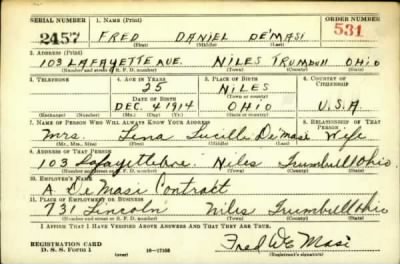 SERIAL NUMBER 1. NAME (Print) ORDER NUMBER
2457 FRED DANIEL DE'MASI 531
(First) (Middle) (Last)
3. ADDRESS (Print)
103 LAFAYETTE AVE. NILES TRUMBULL OHIO
(Number and street or R. F. D. number) (Town) (County) (State)
4. TELEPHONE 5. AGE IN YEARS 6. PLACE OF BIRTH 7. COUNTRY OF CITIZENSHIP
25 NILES
DATE OF BIRTH (Town or county)
DEC. 4 1914 OHIO U.S.A.
(Exchange) (Number) (Mo.) (Day) (Yr.) (State or country)
NAME OF PERSON WHO WILL ALWAYS KNOW YOUR ADDRESS RELATIONSHIP OF THAT PERSON
Mrs. Lena Lucille De'Masi Wife
(Mr., Mrs., Miss) (First) (Middle) (Last)
ADDRESS OF THAT PERSON
103 Lafayette Ave. Niles Trumbull Ohio.
(Number and street or R. F. D. number) (Town) (County) (State)
10. EMPLOYER'S NAME
A. De Masi Contract
11. PLACE OF EMPLOYMENT OR BUSINESS
731 Lincoln Niles Trumbull Ohio
(Number and street or R. F. D. number) (Town) (County) (State)
I AFFIRM THAT I HAVE VERIFIED ABOVE ANSWERS AND THAT THEY ARE TRUE.
REGISTRATION CARD
D. S. S. Form 1 (over) Fred De Masi
(Registrant's signature)